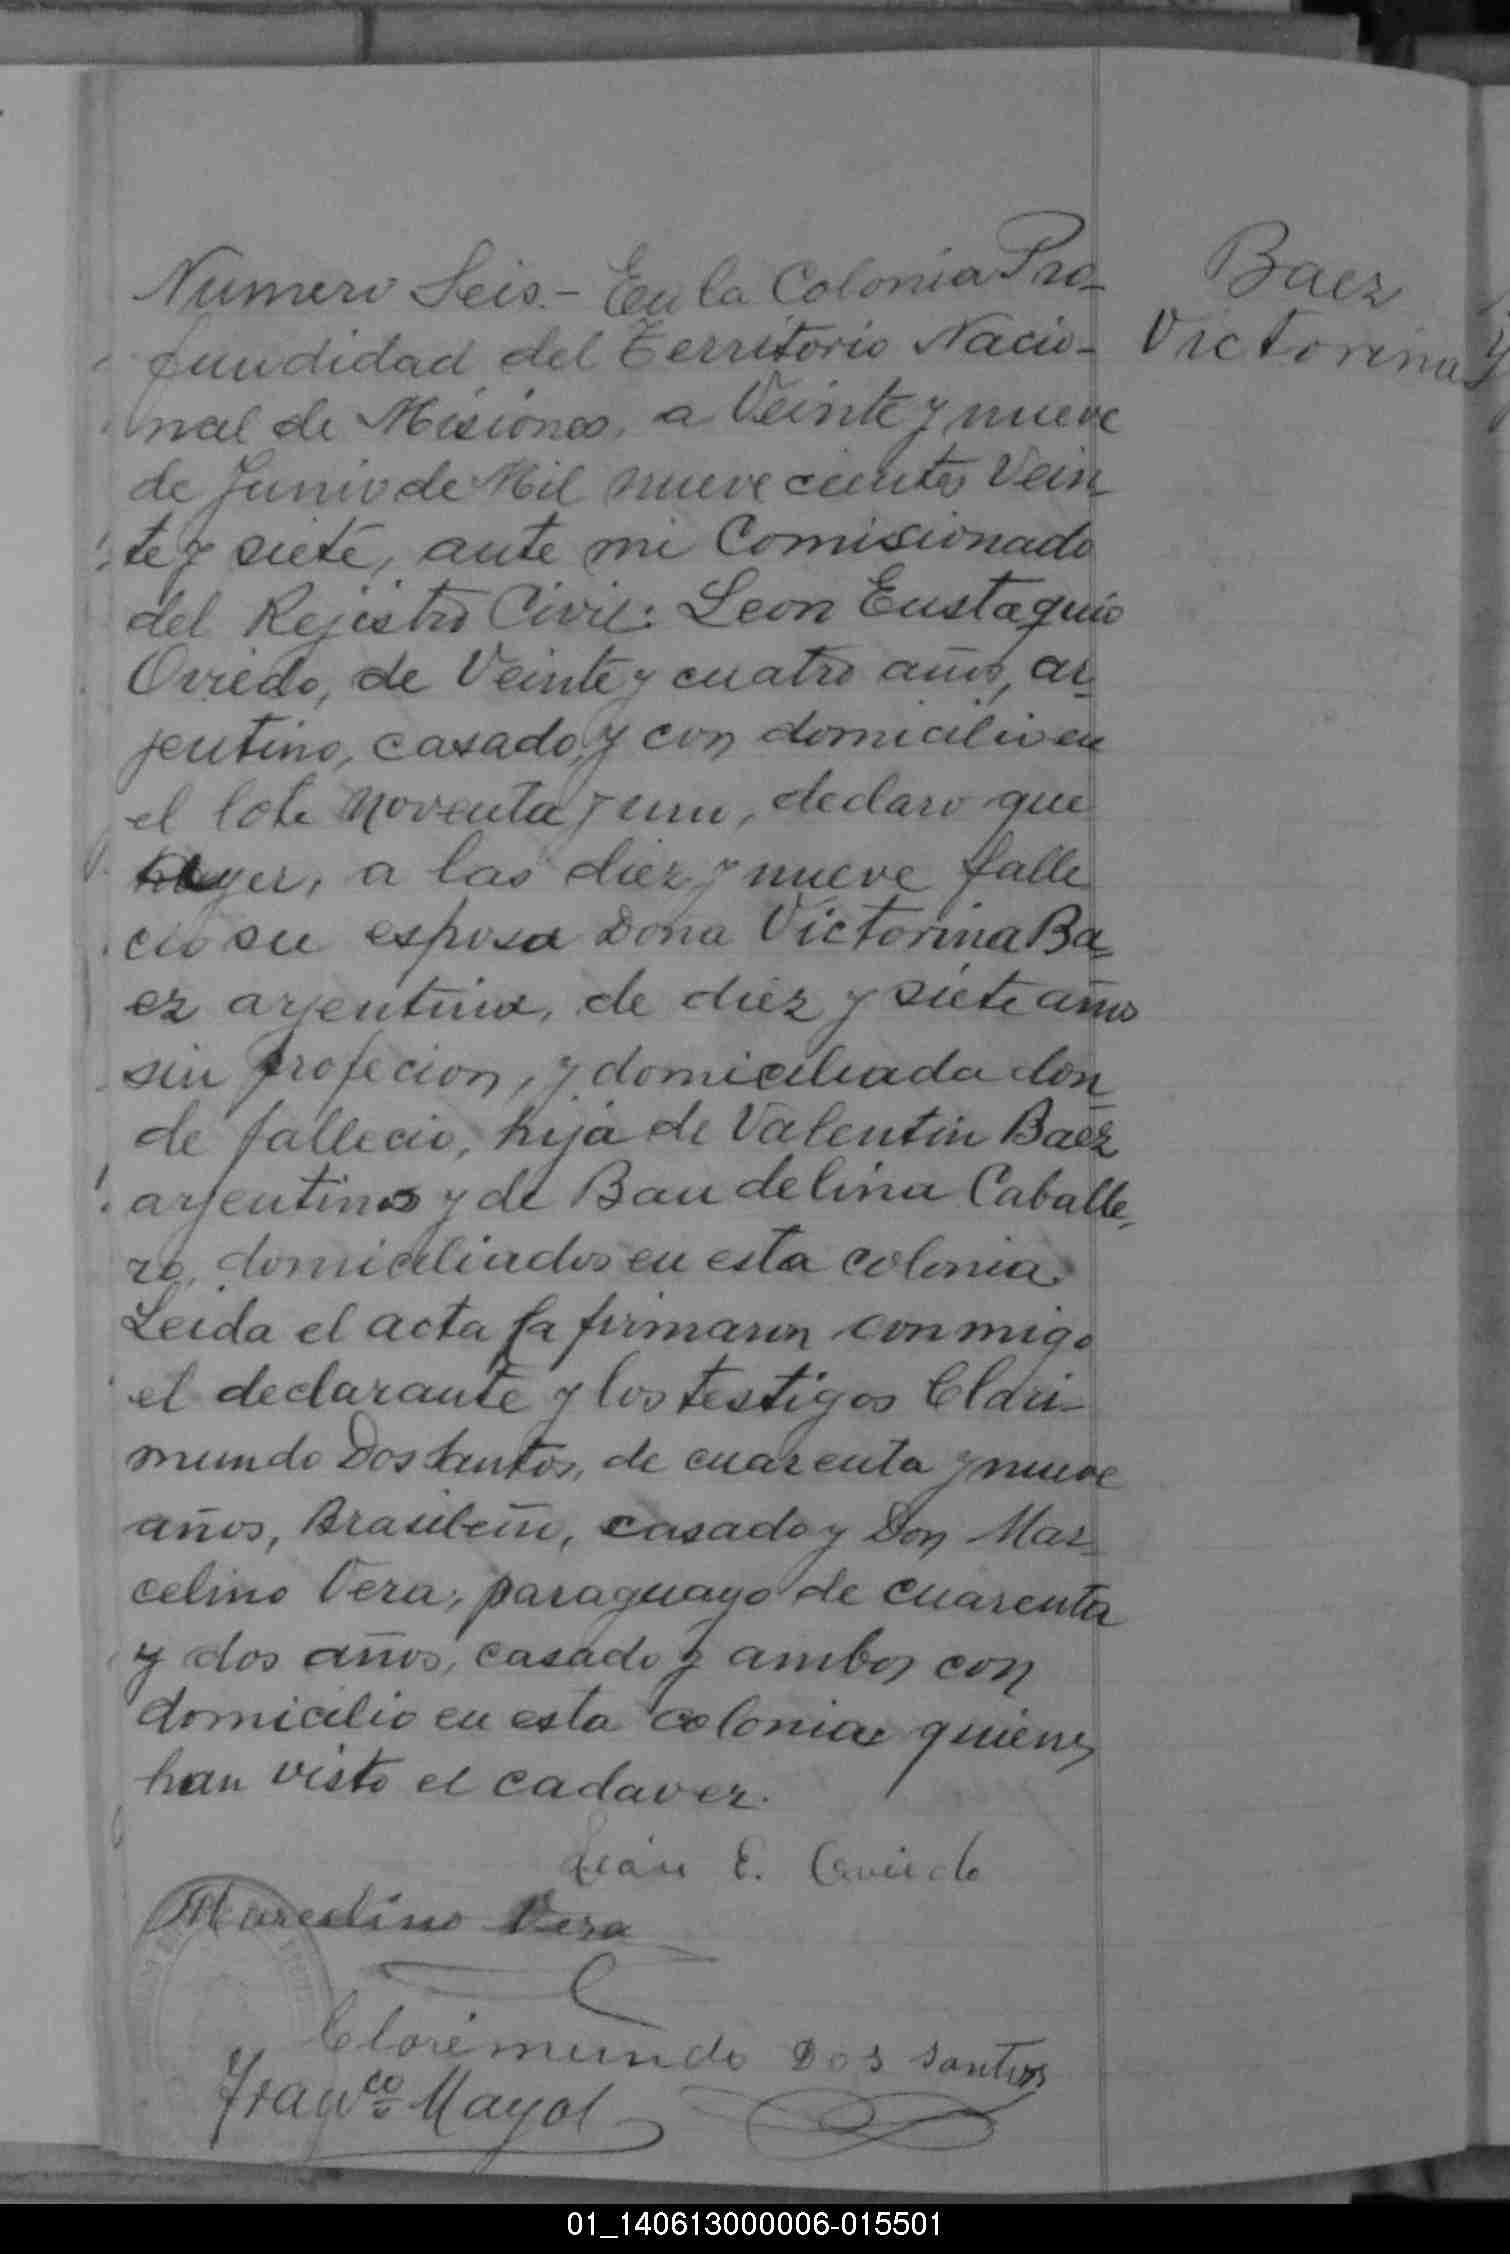 Baez
Victorina
Numero Seis.- En la Colonia Pro-
fundidad del Territorio Nacio-
nal de Misiones, a Veinte y nueve
de Junio de Mil nueve cientos Vein-
te y siete, ante mi Comisionado
del Rejistro Civil: Leon Eustaquio
Oviedo, de Veinte y cuatro años, ar-
jentino, casado, y con domicilio en
el lote noventa y uno, declaro que
ayer, a las diez y nueve falle
cio su esposa Dona Victorina Ba-
ez arjentina, de diez y siete años
sin profecion, y domiciliada don-
de fallecio, hija de Valentin Baez
arjentinos y de Baudelina Caballe-
ro, domiciliados en esta colonia.
Leida el acta la firmaron conmigo
el declarante y los testigos Clari-
mundo Dos Santos, de cuarenta y nueve
años, Brasileño, casado y Don Mar-
celino Vera, paraguayo de cuarenta
y dos años, casado y ambos con
domicilio en esta colonia quienes
han visto el cadaver.
León E. Oviedo
Marcelino Vera
Clorimundo Dos Santos
Franco Mayol
01_140613000006-015501